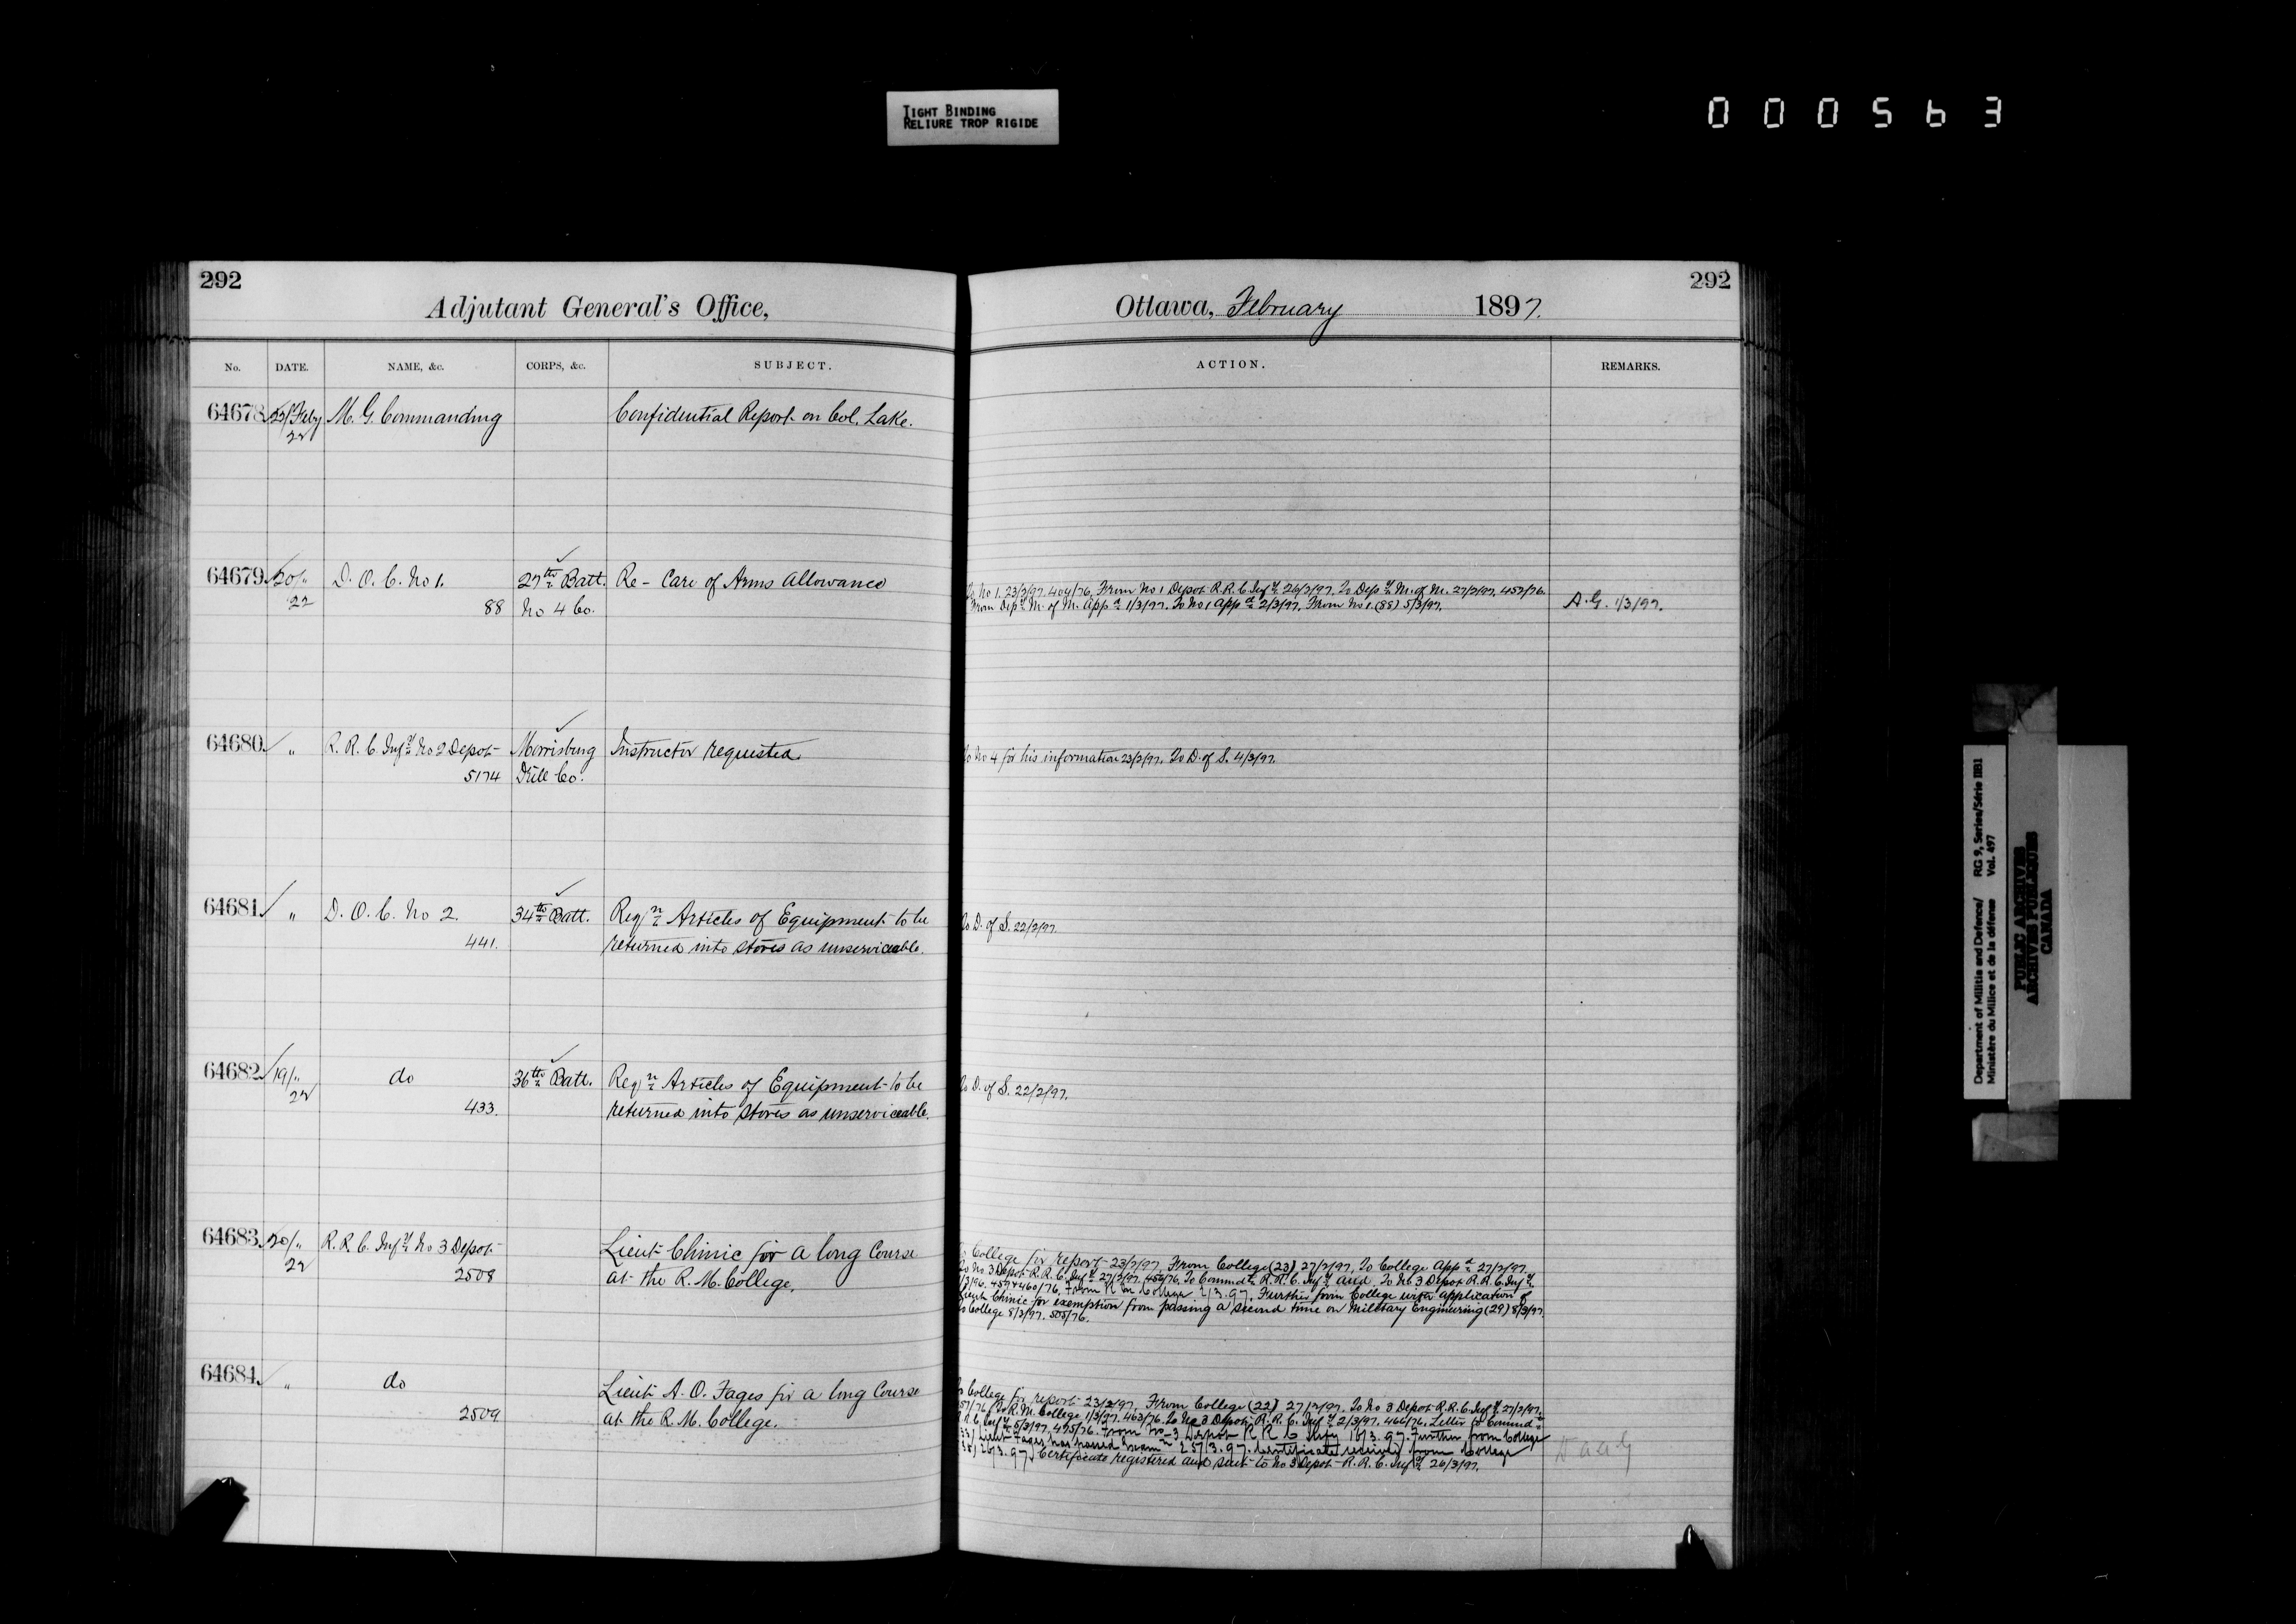 TIGHT BINDING
RELIURE TROP RIGIDE
000563
292
Adjutant General's Office,
No. DATE. NAME, &c. CORPS, &c. SUBJECT.
64678 22/Feby M. G. Commanding Confidential Report on Col. Lake.
22
64679 20/" D. O. C. No 1. 27th Batt. Re - Care of Arms Allowance
22 88 No 4 Co.
64680 " R. R. C. Infy No 2 Depot Morrisburg Instructor requested
5174 Drill Co.
64681 " D. O. C. No 2. 34th Batt. Reqn Articles of Equipment to be
441. returned into stores as unserviceable.
64682 19/" do 36th Batt. Reqn Articles of Equipment to be
22 433. returned into stores as unserviceable.
64683 20/" R. R. C. Infy No 3 Depot Lieut Chinic for a long Course
22 2508 at the R. M. College.
64684 " do Lieut A. O. Fages for a long Course
2509 at the R. M. College.
292
Ottawa, February 1897.
ACTION. REMARKS.
To No 1. 23/2/97. 404/76. From No 1 Depot R. R. C. Infy 26/2/97. To Depy M. of M. 27/2/97. 457/76.
From Depy M. of M. Appd 1/3/97. To No 1 Appd 2/3/97. From No 1. (88) 5/3/97. A. G. 1/3/97.
To No 4 for his information 23/2/97. To D. of S. 4/3/97.
To D. of S. 22/2/97.
To D. of S. 22/2/97.
To College for report 23/2/97. From College (23) 27/2/97. To College Appd 27/2/97.
To No 3 Depot R. R. C. Infy 27/2/97. To Commdt R. R. C. Infy and To No 3 Depot R. R. C. Infy
From R M College 2/3.97. Further from College with application of
Lieut Chinic for exemption from passing a second time on Military Engineering (29) 8/3/97.
To College 8/3/97. 505/76.
To College for report 23/2/97. From College (22) 27/2/97. To No 3 Depot R. R. C. Infy 27/2/97.
To R. M. College 1/3/97. 463/76. To No 3 Depot R. R. C. Infy 2/3/97. 466/76. Letter to Commdt
R. R. C. Infy 5/3/97. 495/76. From No 3 Depot R R C Infy 16/3.97. Further from College
Lieut Fages has passed Examn 25/3.97. Certificate received from College
26/3.97. Certificate registered and sent to No 3 Depot R. R. C. Infy 26/3/97.
Department of Militia and Defence/ RG 9, Series/Série IIB1
Ministère du Milice et de la défense Vol. 497
PUBLIC ARCHIVES
ARCHIVES PUBLIQUES
CANADA